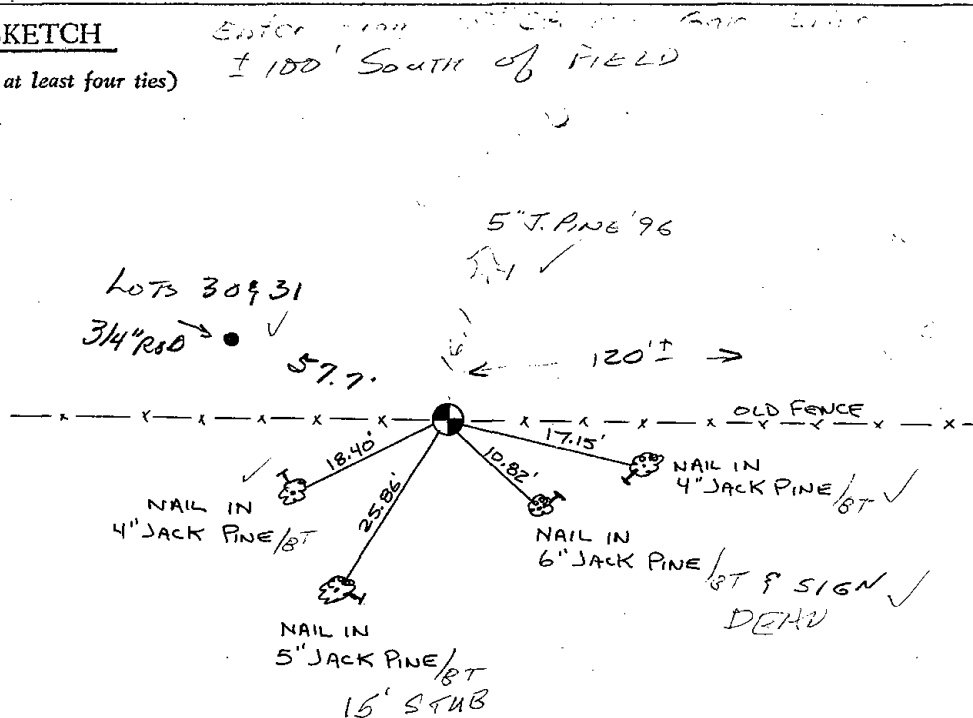 SKETCH
at least four ties)
± 100' SOUTH of FIELD
5" J. PINE '96
LOTS 30 & 31
3/4" ROD
57.7'
120'±
OLD FENCE
18.40'
25.86'
10.82'
17.15'
NAIL IN
4" JACK PINE/BT
NAIL IN
4" JACK PINE/BT
NAIL IN
6" JACK PINE/BT & SIGN
DEAD
NAIL IN
5" JACK PINE/BT
15' STUB